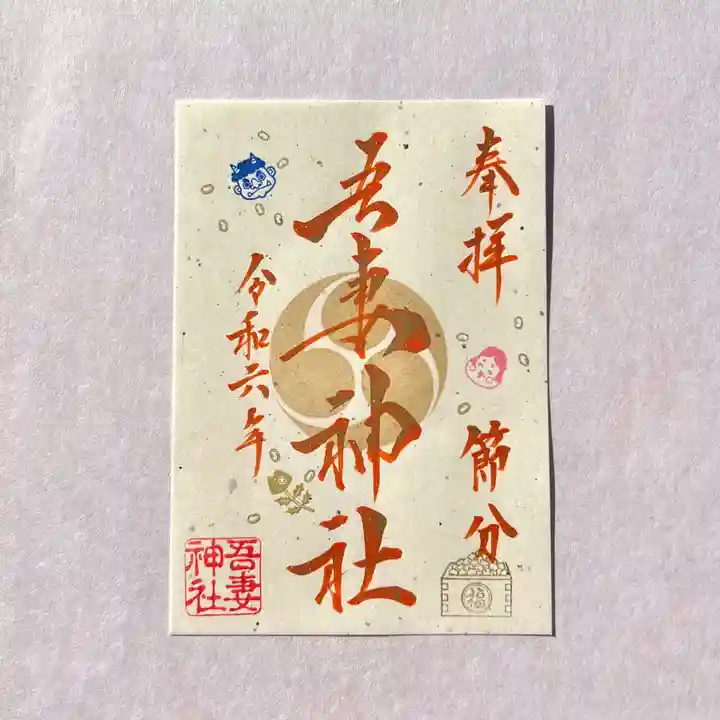 奉拝
節分
福
吾妻神社
令和六年
吾妻
神社